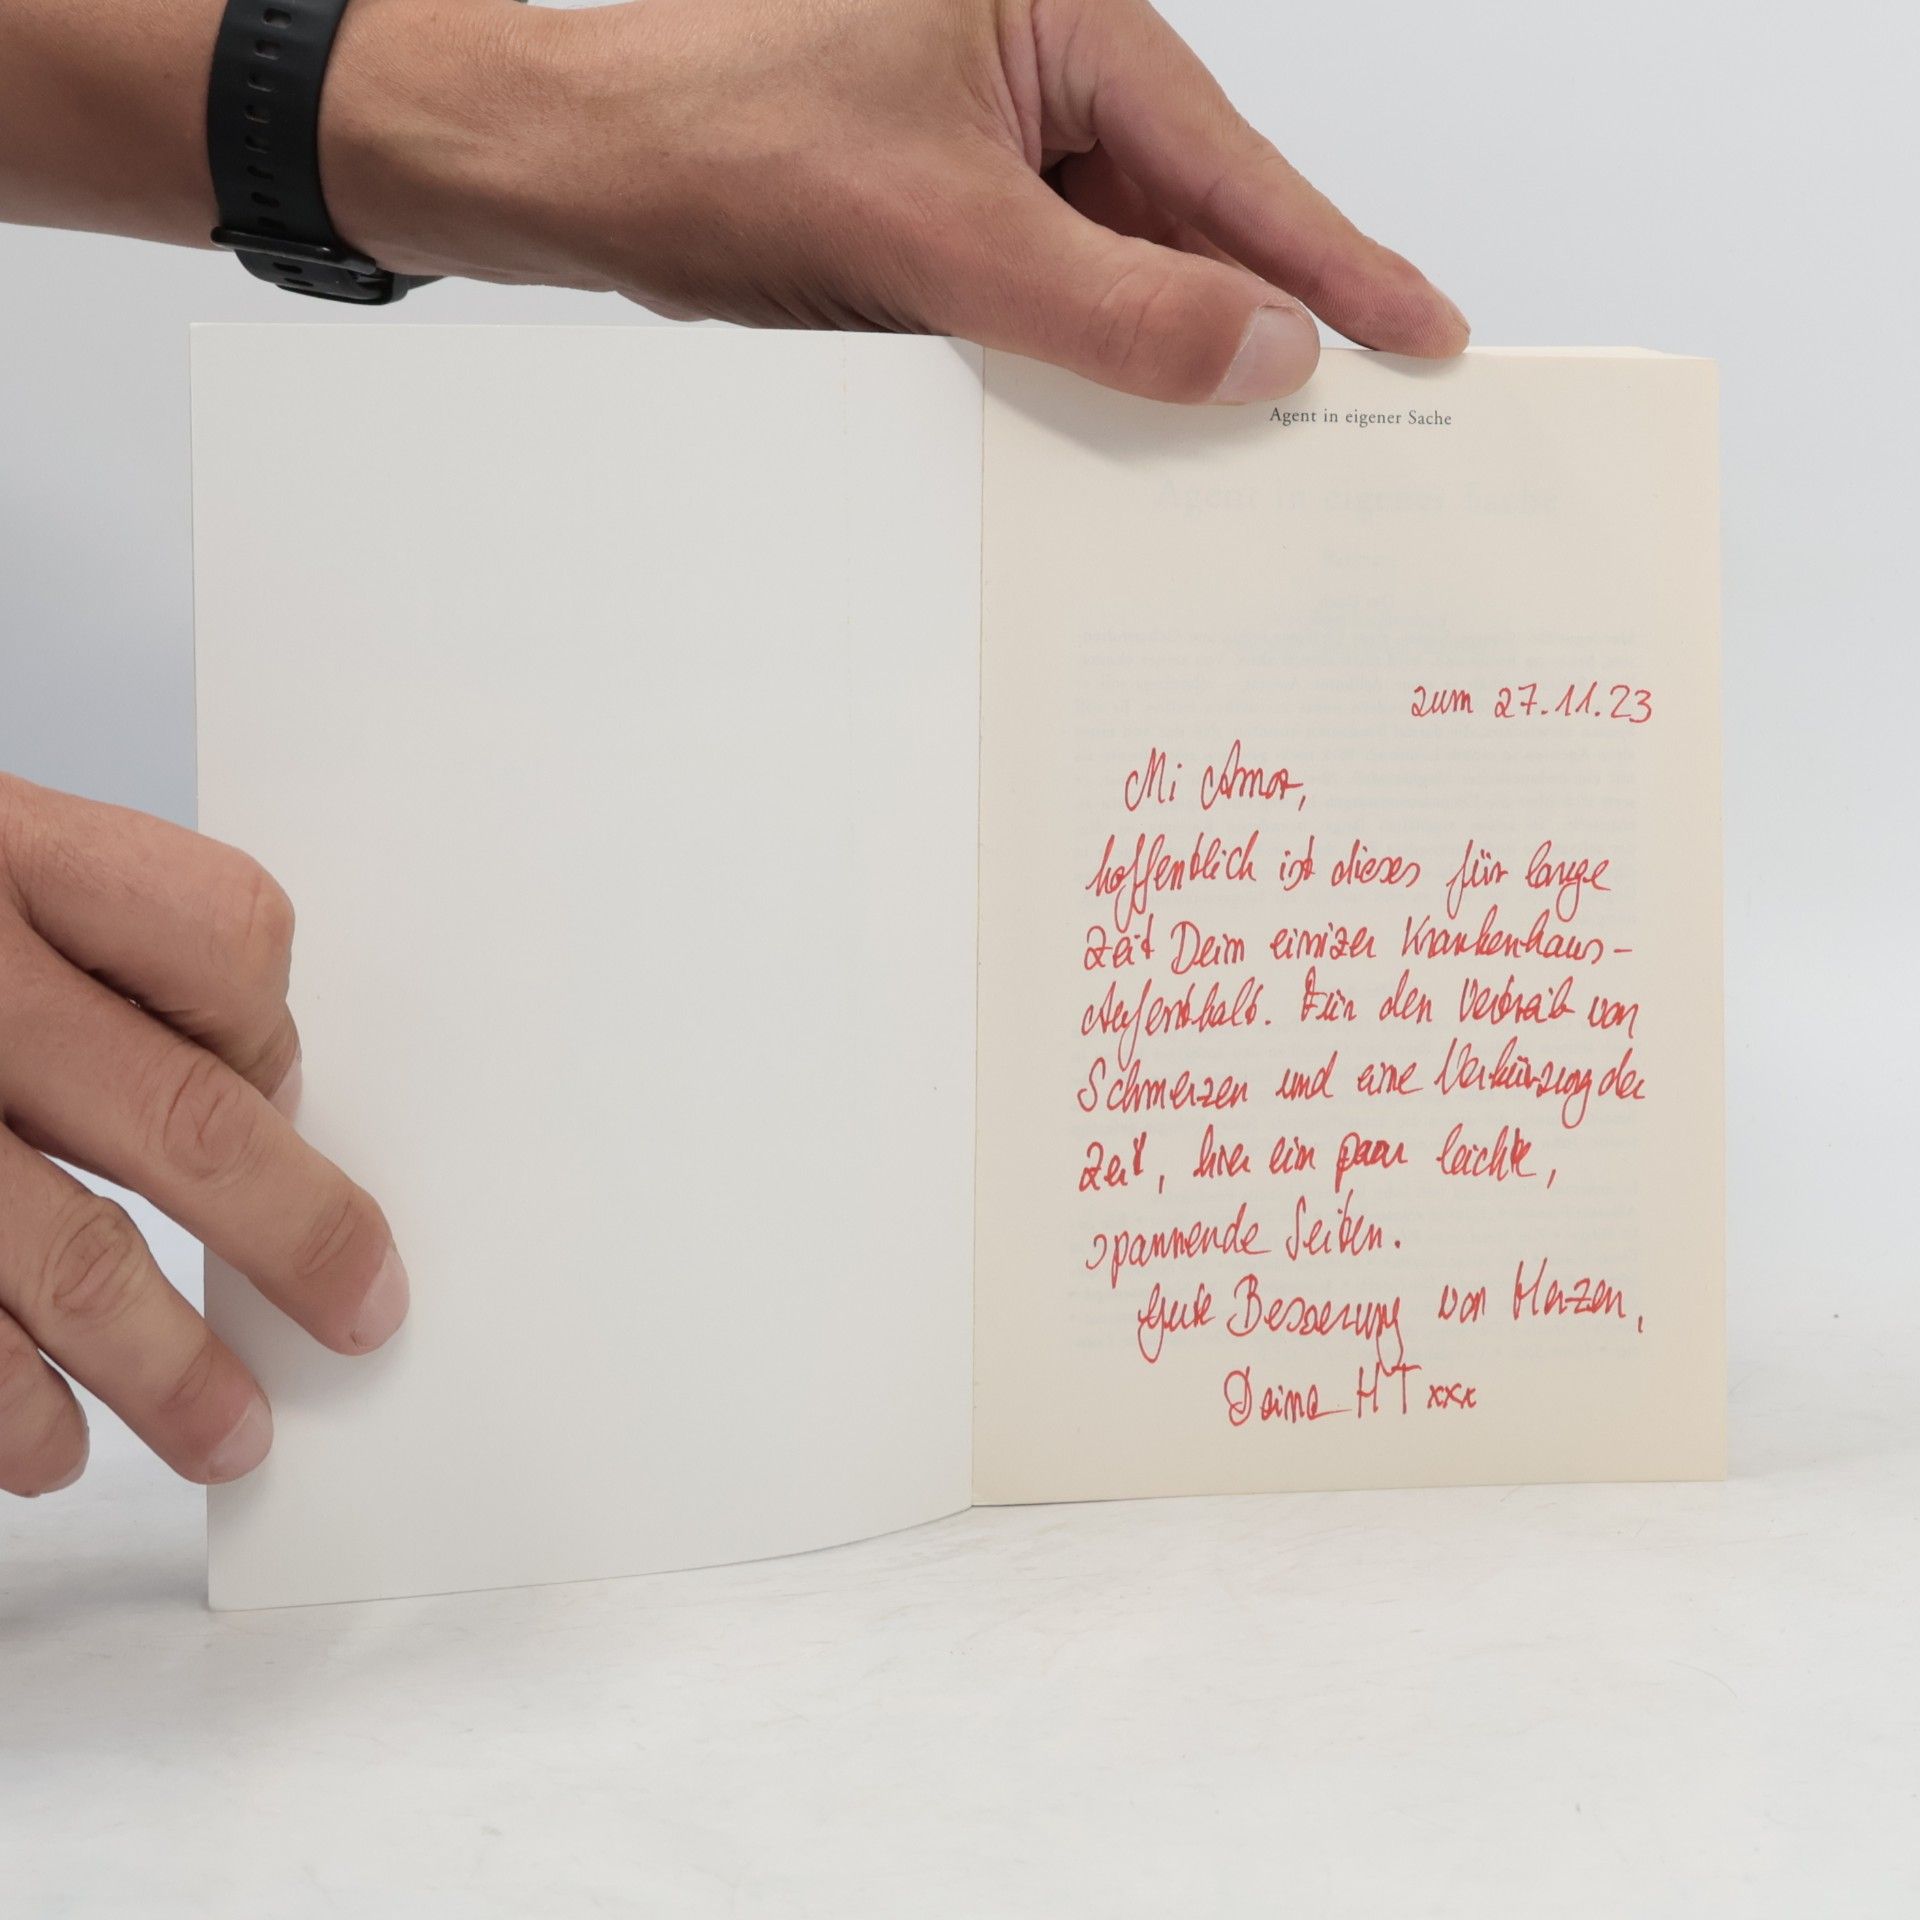 Agent in eigener Sache
Agent in eigener Sache
zum 27.11.23
Mi Amor,
hoffentlich ist dieses für lange
Zeit Dein einziger Krankenhaus-
Aufenthalt. Für den Vertreib von
Schmerzen und eine Verkürzung der
Zeit, hier ein paar leichte,
spannende Seiten.
Gute Besserung von Herzen,
Deine HT xxx